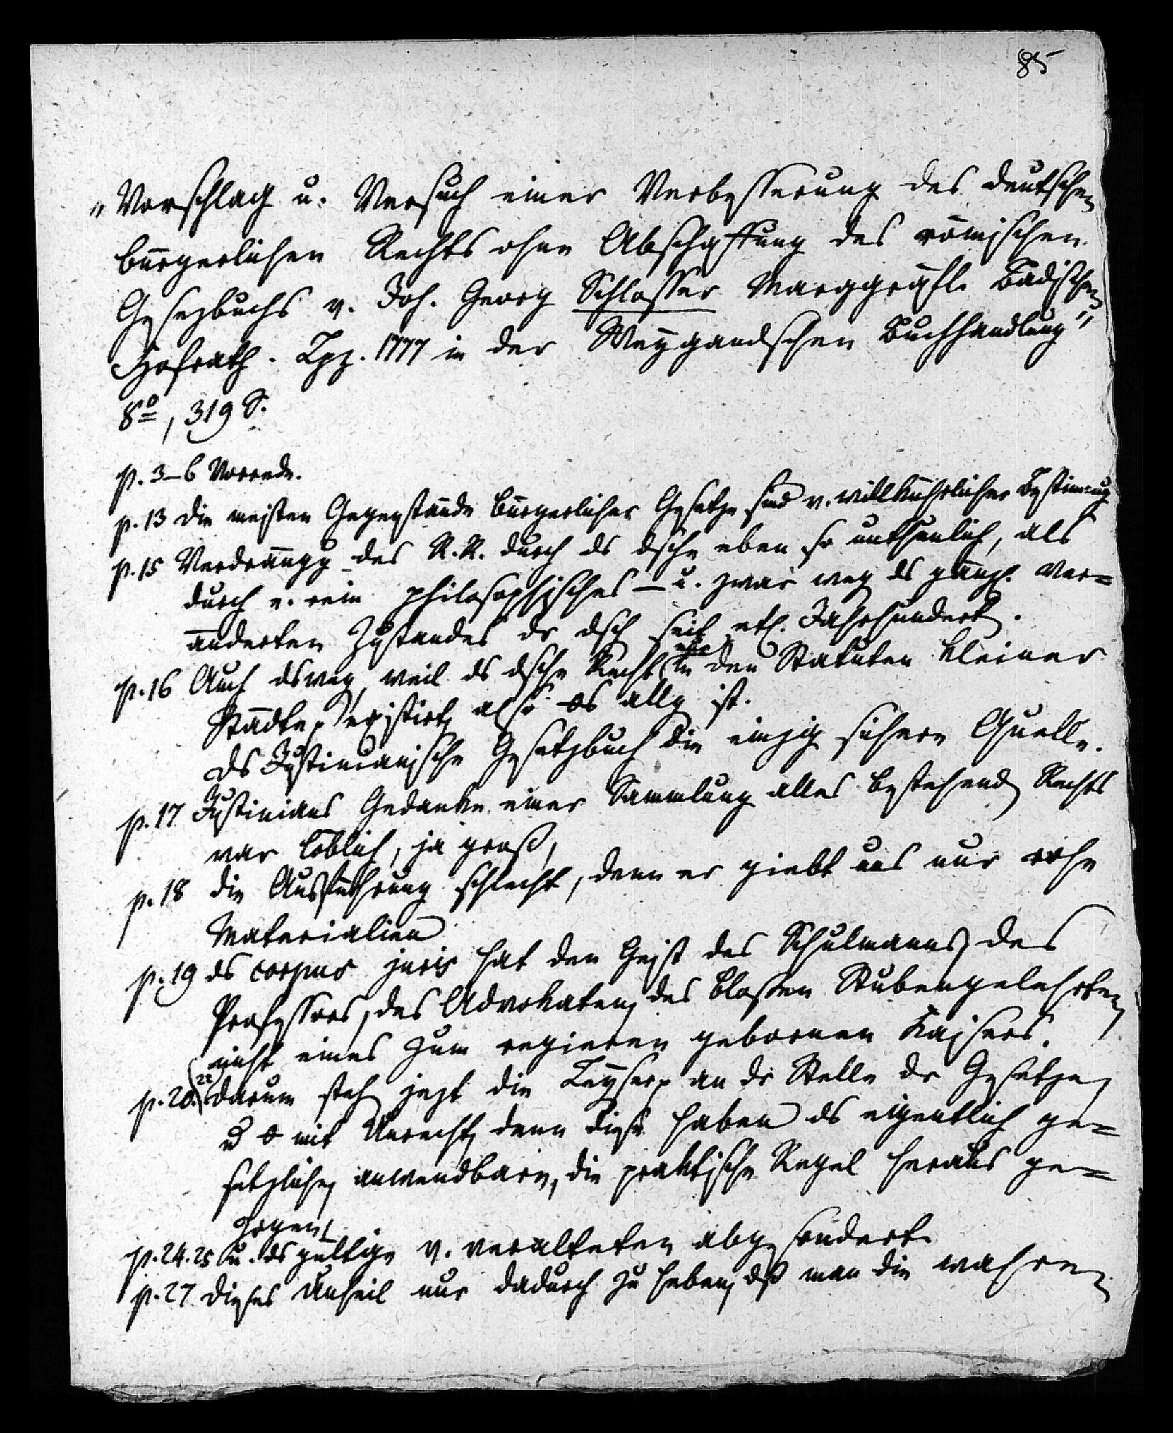 85
„Vorschlag u. Versuch einer Verbesserung des deutschen
bürgerlichen Rechts ohne Abschaffung des römischen
Gesezbuchs v. Joh. Georg Schlosser Marggräfl. Badischen
Hofrath. Lpz. 1777 in der Weygandschen Buchhandlung“
8º, 319 S.
p. 3–6 Vorrede.
p. 13 die meisten Gegenstände bürgerlicher Gesetze sind v. willkührlicher Bestimmung
p. 15 Verdrängg des R.R. durch ds dsche eben so unthunlich, als
durch e. rein philosophisches – u. zwar weg ds gänzl. ver-
änderten Zustandes dr dsch seit etl. Jahrhundert.
p. 16 Auch dsweg, weil ds dsche Recht nur in den Statuten kleiner
Städte existirt, also es allg ist.
ds Justinianische Gesetzbuch die einzig sichere Quelle.
p. 17 Justinians Gedanke einer Sammlung alles bestehend Rechts
war löblich, ja groß,
p. 18 die Ausführung schlecht, denn er giebt uns nur rohe
Materialien
p. 19 ds corpus juris hat den Geist des Schulmanns, des
Professors, des Advokaten, des bloßen Stubengelehrten,
nicht eines zum regieren gebornen Kaisers.
p. 20. 22 darum steh jezt die Leyser, an dr Stelle dr Gesetze,
u mit Unrecht, denn diese haben ds eigentlich ge-
setzliche, anwendbare, die praktische Regel heraus ge-
zogen,
p. 24. 25 u. ds gültige v. veralteten abgesondert.
p. 27 dieses Unheil nur dadurch zu heben, dß man die wahren